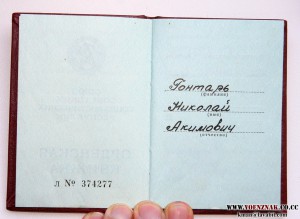 Гонтарь
(фамилия)
Николай
(имя)
Акимович
(отчество)
Л № 374277
WWW.VOENZNAK.00.CC